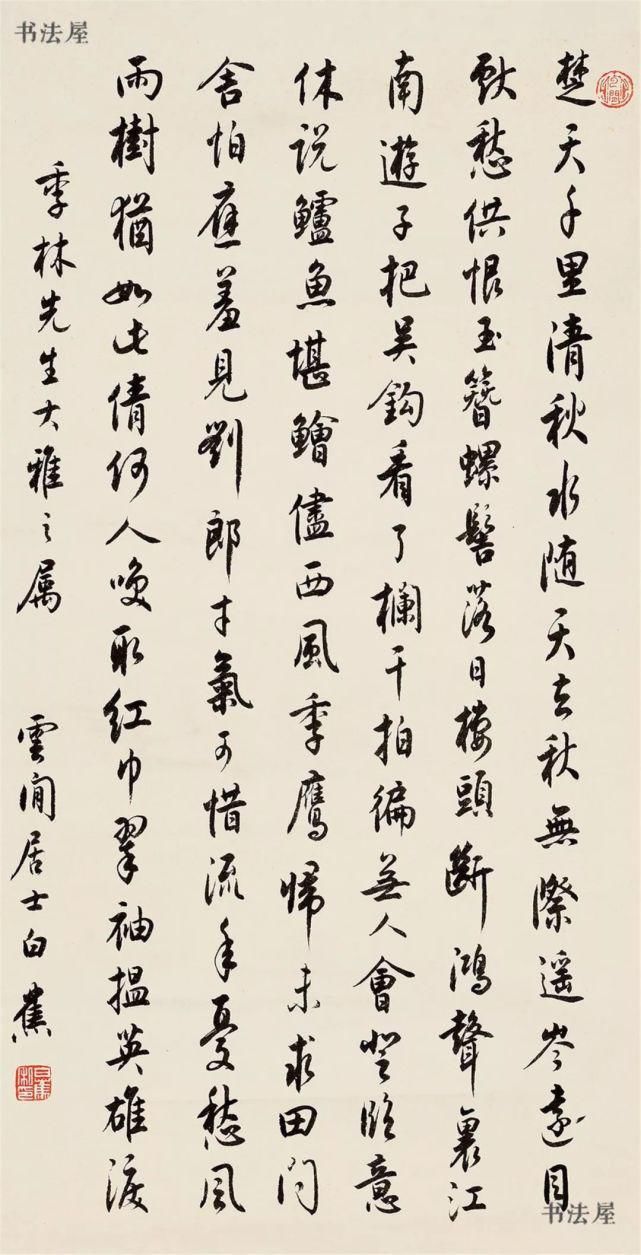 书法屋
楚天千里清秋水随天去秋無際遥岑遠目
献愁供恨玉簪螺髻落日樓頭斷鴻聲裏江
南遊子把吴鈎看了欄干拍徧無人會登臨意
休説鱸魚堪鱠儘西風季鷹歸未求田问
舍怕應羞見劉郎才氣可惜流年憂愁風
雨樹猶如此倩何人唤取红巾翠袖揾英雄淚
季林先生大雅之属
雲间居士白蕉
书法屋